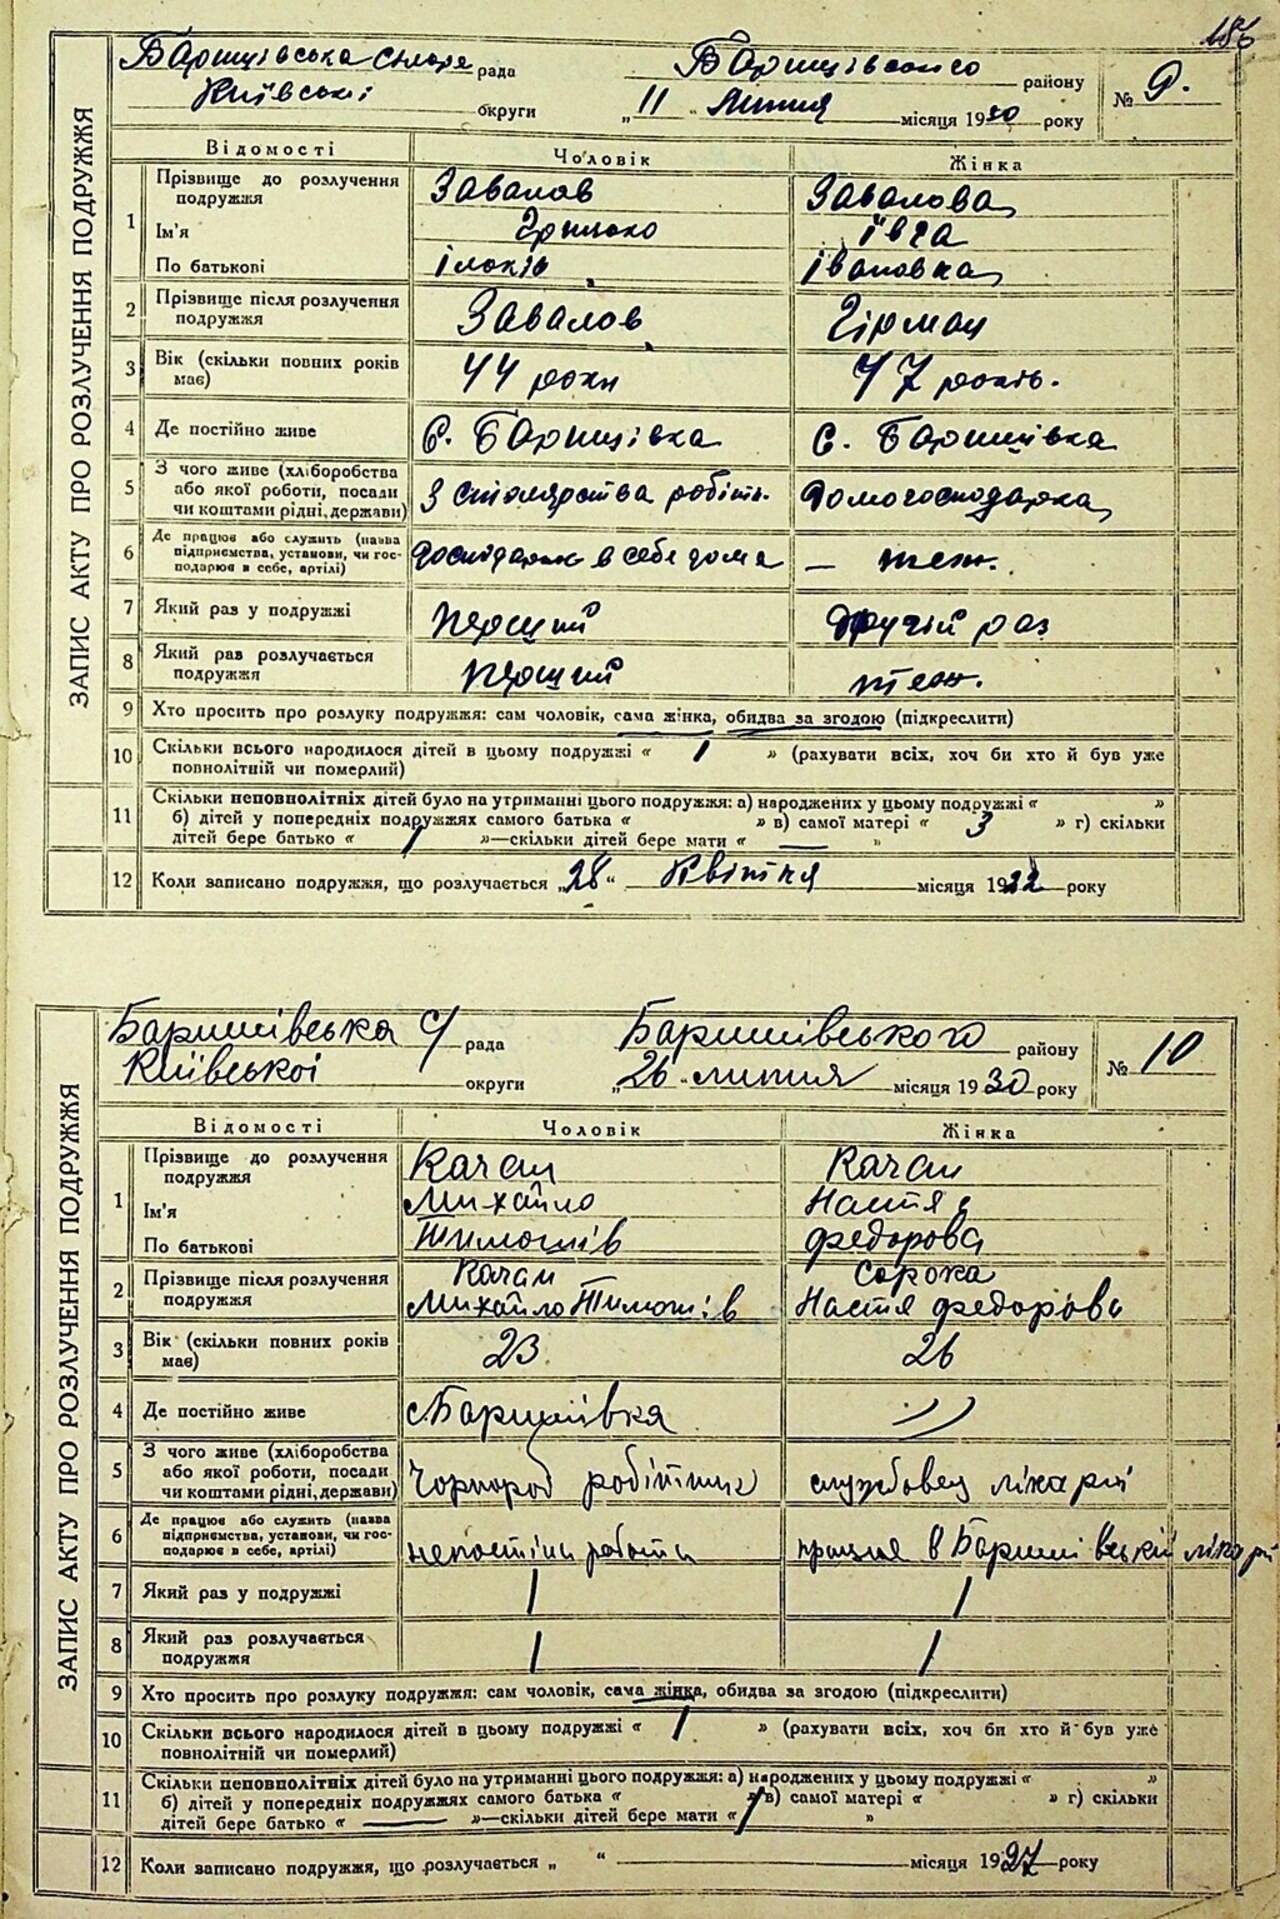 186
Баришівська сільра рада Баришівського району № 9.
Київської округи „11" Липня місяця 1930 року
ЗАПИС АКТУ ПРО РОЗЛУЧЕННЯ ПОДРУЖЖЯ
Відомості Чоловік Жінка
1 Прізвище до розлучення подружжя Завалов Завалова
Ім'я Грицько Ївга
По батькові Івановна
2 Прізвище після розлучення подружжя Завалов Гірман
3 Вік (скільки повних років має) 44 роки 47 років.
4 Де постійно живе С. Баришівка С. Баришівка
5 З чого живе (хліборобства або якої роботи, посади чи коштами рідні, держави) З столярства робіть. Домогосподарка
6 Де працює або служить (назва підприємства, установи, чи господарює в себе, артілі) в себе дома — теж.
7 Який раз у подружжі перший другий раз
8 Який раз розлучається подружжя перший теж.
9 Хто просить про розлуку подружжя: сам чоловік, сама жінка, обидва за згодою (підкреслити)
10 Скільки всього народилося дітей в цьому подружжі « 1 » (рахувати всіх, хоч би хто й був уже
повнолітній чи померлий)
11 Скільки неповнолітніх дітей було на утриманні цього подружжя: а) народжених у цьому подружжі « »
б) дітей у попередніх подружжях самого батька « » в) самої матері « 3 » г) скільки
дітей бере батько « 1 »—скільки дітей бере мати « — »
12 Коли записано подружжя, що розлучається „28" Квітня місяця 1922 року
Баришівська с/ рада Баришівського району № 10
Київської округи „26" липня місяця 1930 року
ЗАПИС АКТУ ПРО РОЗЛУЧЕННЯ ПОДРУЖЖЯ
Відомості Чоловік Жінка
1 Прізвище до розлучення подружжя Качан Качан
Ім'я Михайло Настя
По батькові Тимошів Федорова
2 Прізвище після розлучення подружжя Качан Михайло Тимошів Сорока Настя Федорова
3 Вік (скільки повних років має) 23 26
4 Де постійно живе с Баришівка //
5 З чого живе (хліборобства або якої роботи, посади чи коштами рідні, держави) Чорнороб робітник службовец лікарні
6 Де працює або служить (назва підприємства, установи, чи господарює в себе, артілі) непостійн работи працює в Баришівській лікарні
7 Який раз у подружжі 1 1
8 Який раз розлучається подружжя 1 1
9 Хто просить про розлуку подружжя: сам чоловік, сама жінка, обидва за згодою (підкреслити)
10 Скільки всього народилося дітей в цьому подружжі « 1 » (рахувати всіх, хоч би хто й був уже
повнолітній чи померлий)
11 Скільки неповнолітніх дітей було на утриманні цього подружжя: а) народжених у цьому подружжі « »
б) дітей у попередніх подружжях самого батька « » в) самої матері « » г) скільки
дітей бере батько « — »—скільки дітей бере мати « 1 »
12 Коли записано подружжя, що розлучається „ " місяця 1927 року